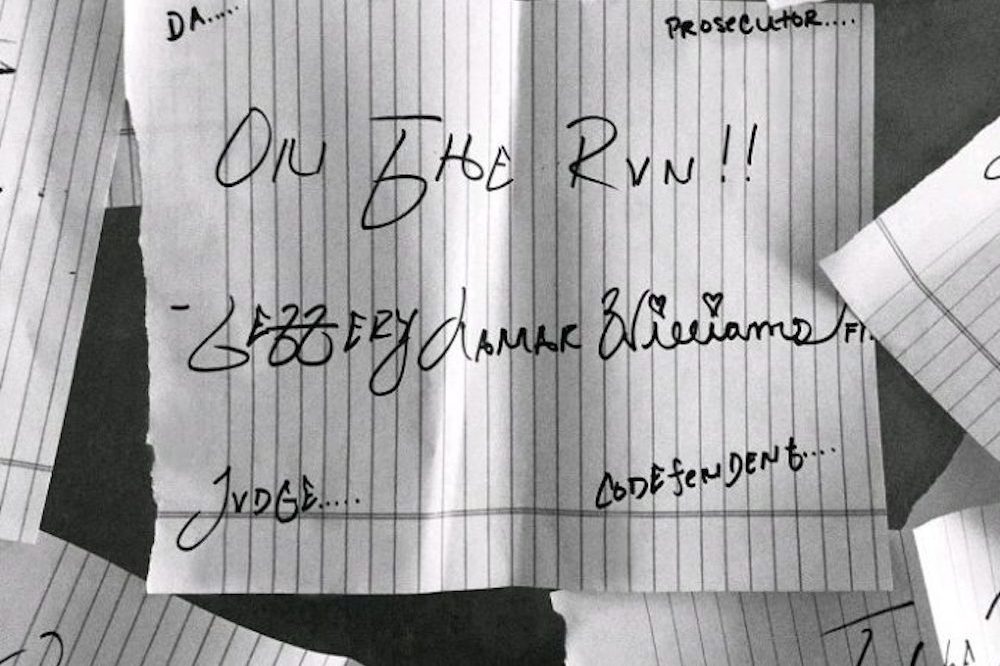 DA.....
PROSECUTOR....
ON THE RVN !!
- JEZZERY LAMAR Williams
JVDGE.....
CODEfeNDENt....